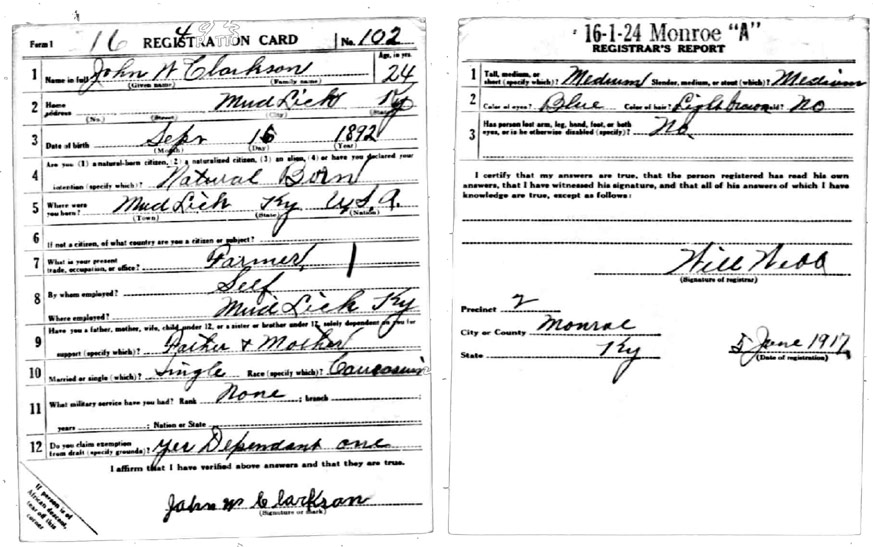 Form 1 16 REGISTRATION CARD No. 102
1 Name in full John W Clarkson Age, in yrs. 24
(Given name) (Family name)
2 Home address Mud Lick Ky
(No.) (Street) (City) (State)
3 Date of birth Sept 15 1892
(Month) (Day) (Year)
4 Are you (1) a natural-born citizen, (2) a naturalized citizen, (3) an alien, (4) or have you declared your
intention (specify which)? Natural Born
5 Where were you born? Mud Lick Ky U.S.A.
(Town) (State) (Nation)
6 If not a citizen, of what country are you a citizen or subject?
7 What is your present trade, occupation, or office? Farmer
8 By whom employed? Self
Where employed? Mud Lick Ky
9 Have you a father, mother, wife, child under 12, or a sister or brother under 12, solely dependent on you for
support (specify which)? Father & Mother
10 Married or single (which)? Single Race (specify which)? Caucasain
11 What military service have you had? Rank None ; branch
years ; Nation or State
12 Do you claim exemption from draft (specify grounds)? Yes Dependant one
I affirm that I have verified above answers and that they are true.
John W Clarkson
(Signature or mark)
If person is of
African descent,
tear off this
corner
16-1-24 Monroe "A"
REGISTRAR'S REPORT
1 Tall, medium, or short (specify which)? Medium Slender, medium, or stout (which)? Medium
2 Color of eyes? Blue Color of hair? Light brown No
3 Has person lost arm, leg, hand, foot, or both
eyes, or is he otherwise disabled (specify)? No
I certify that my answers are true, that the person registered has read his own
answers, that I have witnessed his signature, and that all of his answers of which I have
knowledge are true, except as follows:
Will Webb
(Signature of registrar)
Precinct 2
City or County Monroe
State Ky
5 June 1917
(Date of registration)